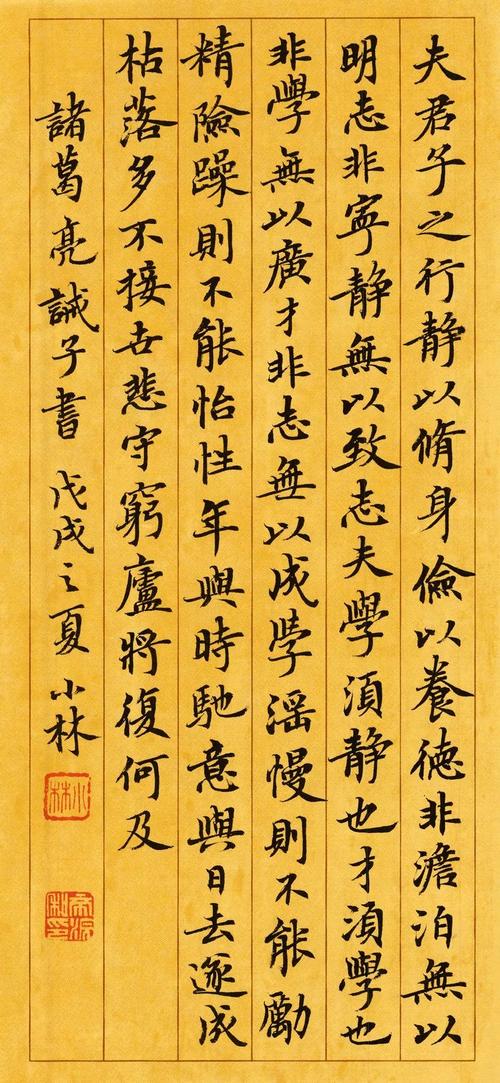 夫君子之行静以脩身儉以養德非澹泊無以
明志非寧静無以致志夫學須静也才須學也
非學無以廣才非志無以成学滛慢則不能勵
精險躁則不能怡性年與時馳意與日去遂成
枯落多不接世悲守窮廬將復何及
諸葛亮誡子書 戊戌之夏 小林
小林